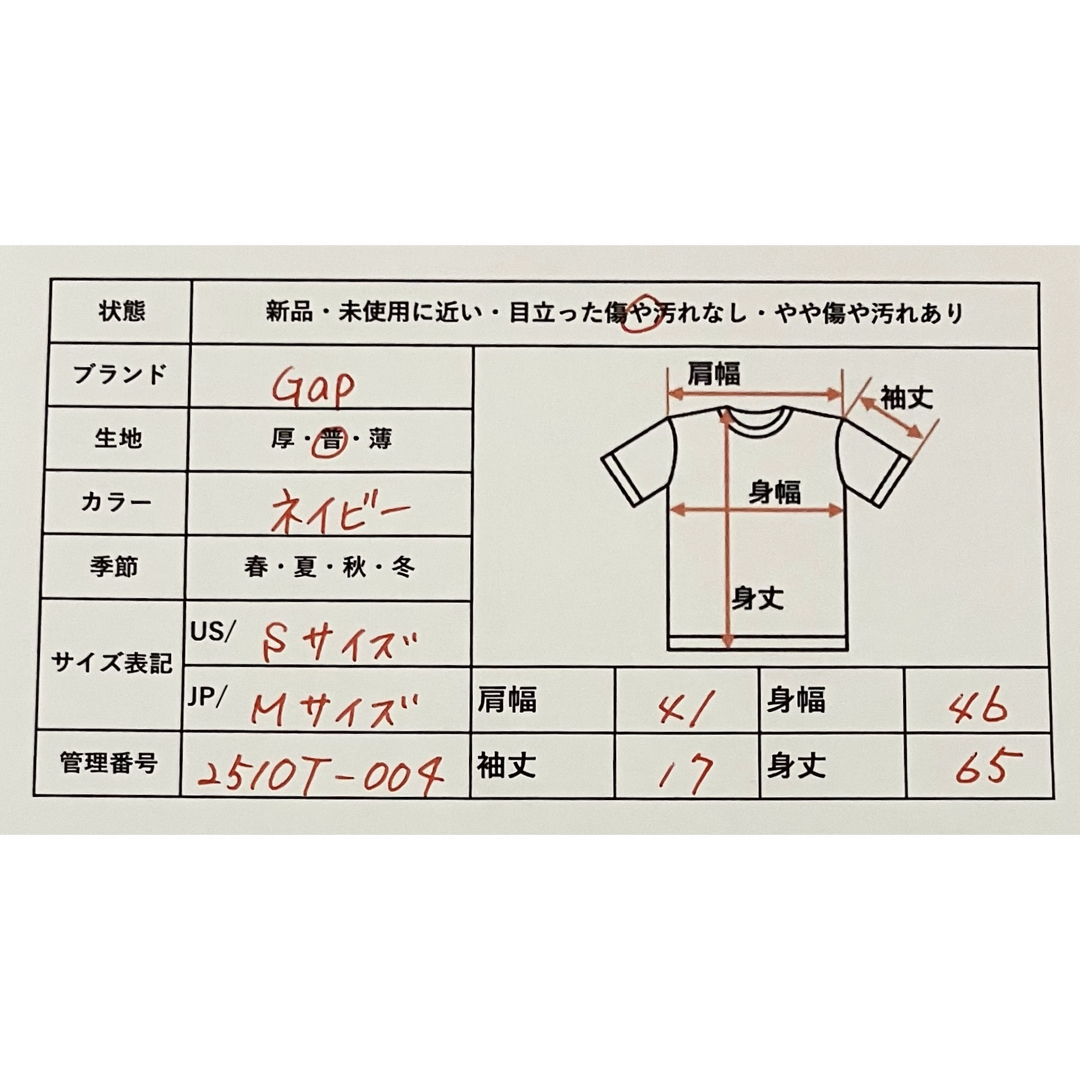 状態 新品・未使用に近い・目立った傷や汚れなし・やや傷や汚れあり
ブランド Gap
生地 厚・普・薄
カラー ネイビー
季節 春・夏・秋・冬
サイズ表記 US/ Sサイズ
JP/ Mサイズ
管理番号 2510T-004
肩幅
袖丈
身幅
身丈
肩幅 41 身幅 46
袖丈 17 身丈 65